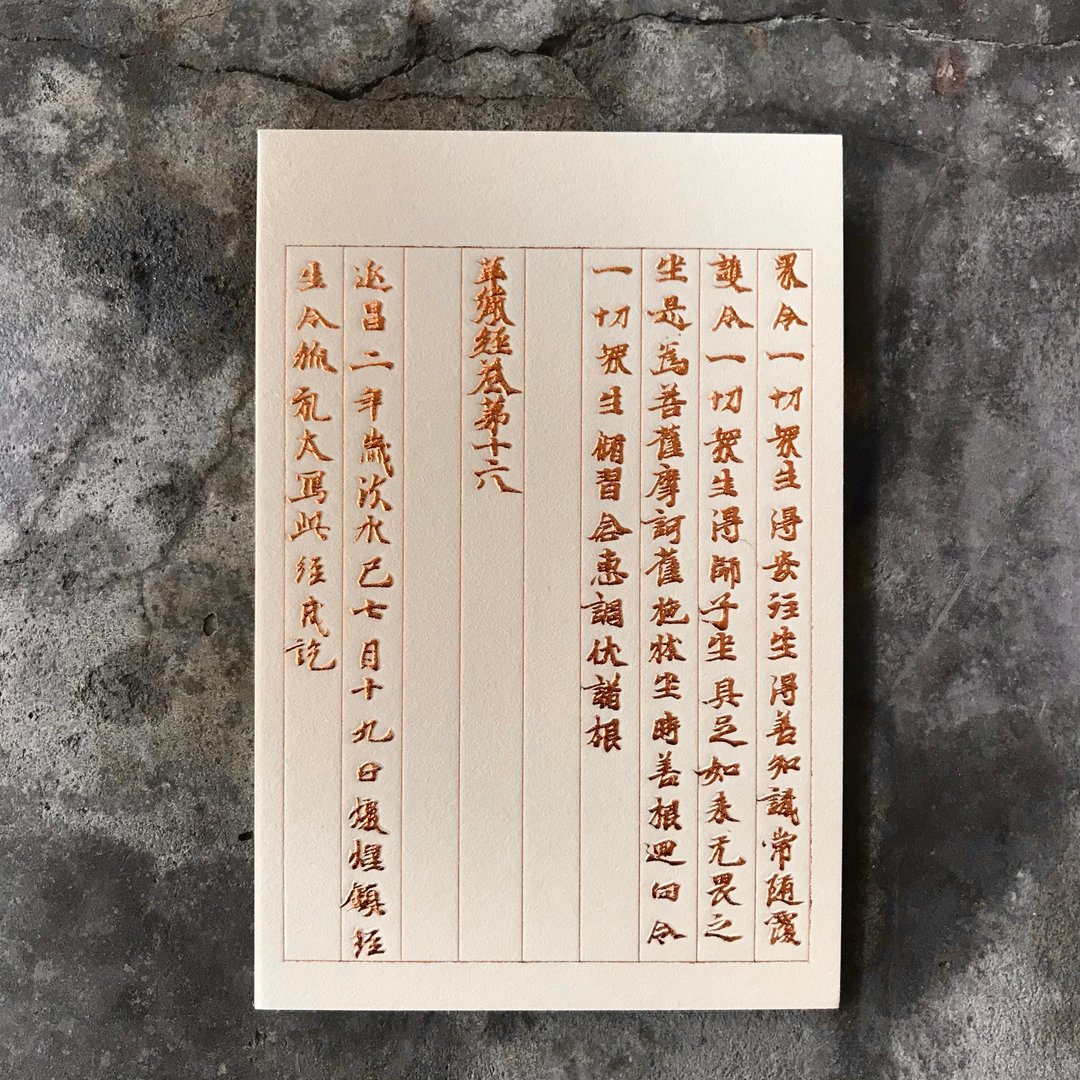 眾令一切眾生得安註坐得善知識常随覆
護令一切眾生得師子坐具足如来无畏之
坐是為善薩摩訶薩施牀坐時善根迴向令
一切眾生脩習令惠調伏諸根
華嚴經卷苐十六
延昌二年歲次水巳七月十九日燉煌鎮経
生令狐礼太寫此經成訖